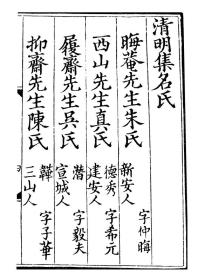 清明集名氏
晦菴先生朱氏
字仲晦
新安人
西山先生真氏
德秀 字希元
建安人
履齋先生吳氏
潛 字毅夫
宣城人
抑齋先生陳氏
韡 字子華
三山人